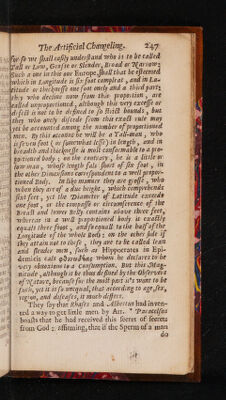 The Artificial Changeling. 247
for so we shall easily understand who is to be called
Tall or Low, Grosse or Slender, Broad or Narrow;
Such a one in this our Europe, shall that be esteemed
which in Longitude is six foot compleat, and in La-
titude or thicknesse one foot only and a third part:
they who decline now from this proportion, are
called unproportioned, although this very excesse or
defect is not to be defined so strict bounds, but
they who only discede from this exact rule may
yet be accounted among the number of proportioned
men. By this account he will be a Tall-man, who
is seven foot (or somewhat lesse) in length, and in
breadth and thicknesse is most conformable to a pro-
portioned body; on the contrary, he is a little or
low man, whose length fals short of six foot, in
the other Dimensions correspondent to a well propor-
tioned Body. In like manner they are grosse, who
when they are of a due height, which comprehends
sixt feet, yet the Diameter of Latitude exceeds
one foot, or the compasse or circumference of the
Breast and lower Belly contains above three feet,
whereas in a well proportioned body it exactly
equals three foot, and so equals to the half of the
Longitude of the whole Body; on the other side if
they attain not to these, they are to be called lean
and slender men, such as Hippocrates in Epi-
demicis cals whom he declares to be
very obnoxious to a Consumption. But this Mag-
nitude, although it be thus defined by the Observers
of Nature, because for the most part it's wont to be
such, yet it is so unequal, that according to age, sex,
region, and diseases, it much differs.
They say that Rhases and Albertus had inven-
ted a way to get little men by Art. Paracelsus
boasts that he had received this secret of secrets
from God: affirming, that if the Sperm of a man
do